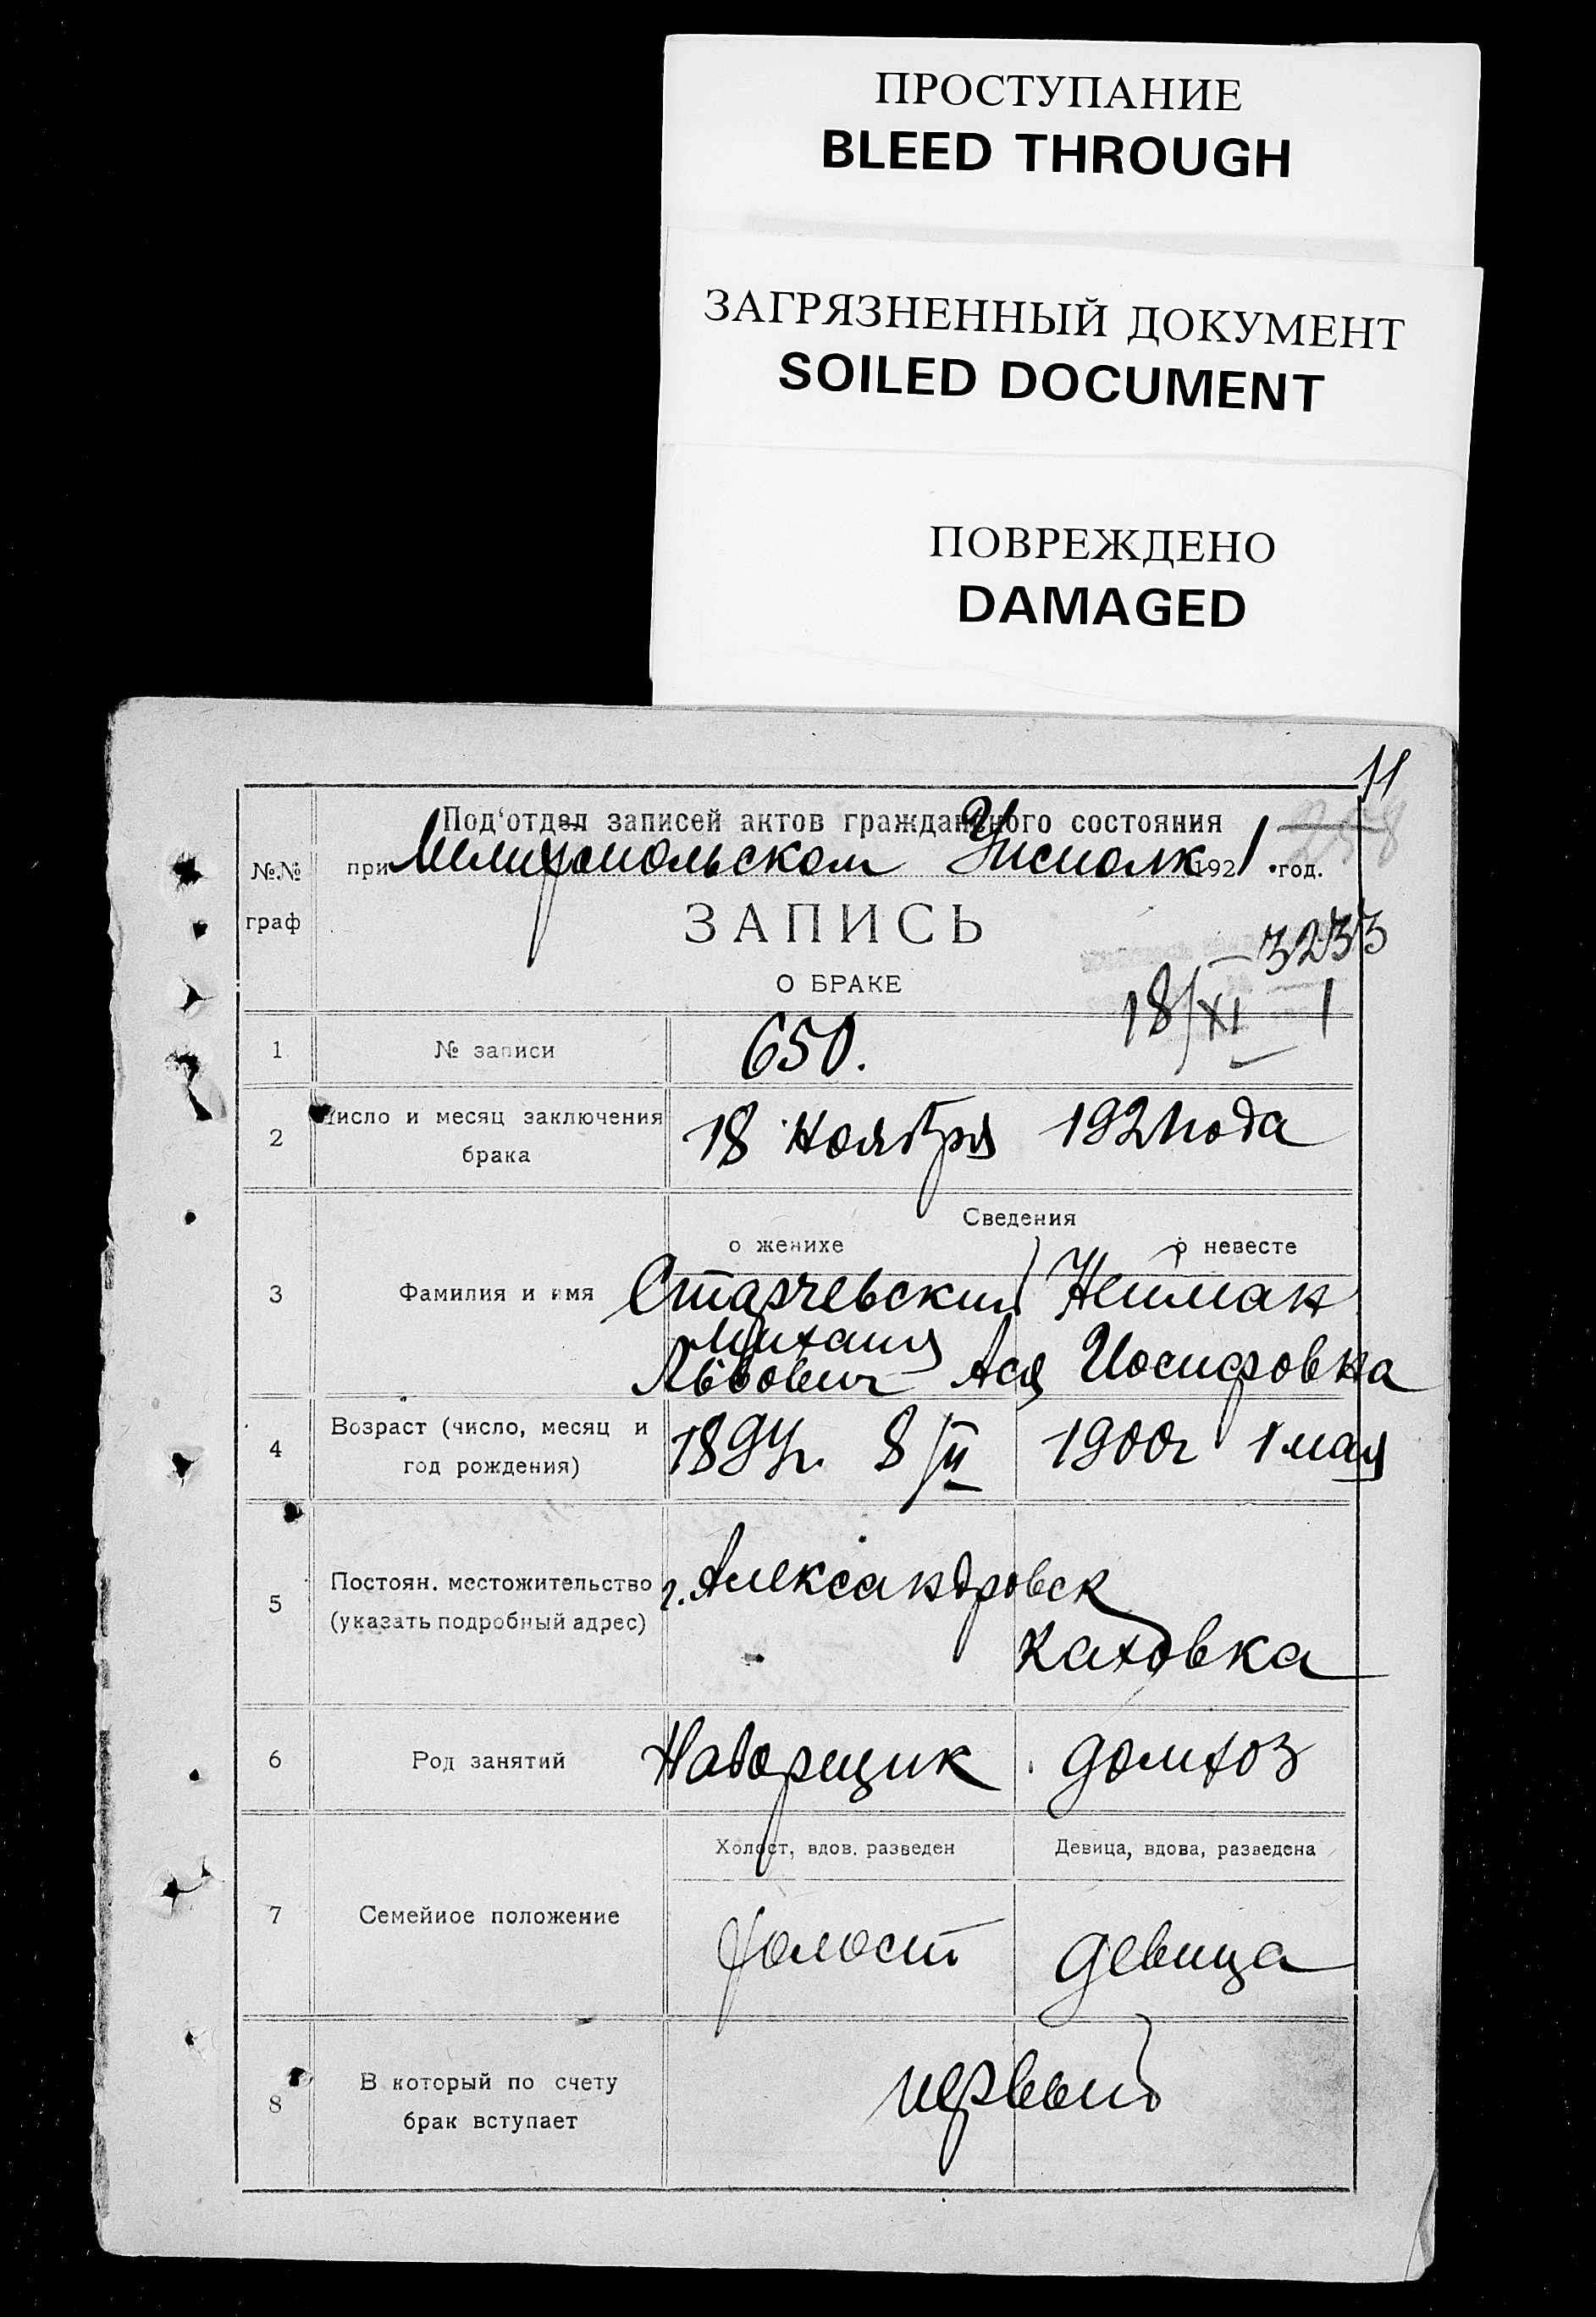 ПРОСТУПАНИЕ
BLEED THROUGH
ЗАГРЯЗНЕННЫЙ ДОКУМЕНТ
SOILED DOCUMENT
ПОВРЕЖДЕНО
DAMAGED
11
Под‘отдел записей актов гражданского состояния
№№ граф
при Мелитопольском Уисполк 1921 год.
ЗАПИСЬ
3233
О БРАКЕ
18/XI 1
1 № записи 650.
2 Число и месяц заключения брака 18 Ноября 1921 года
Сведения
о женихе о невесте
3 Фамилия и имя Старчевский Нейман
Михаил
Львович Ася Иосифовна
4 Возраст (число, месяц и год рождения) 1897г. 8/II 1900г 1 мая
5 Постоян. местожительство (указать подробный адрес) г. Александровск
Каховка
6 Род занятий Наборщик домхоз
Холост, вдов. разведен Девица, вдова, разведена
7 Семейное положение Холост девица
8 В который по счету брак вступает первый